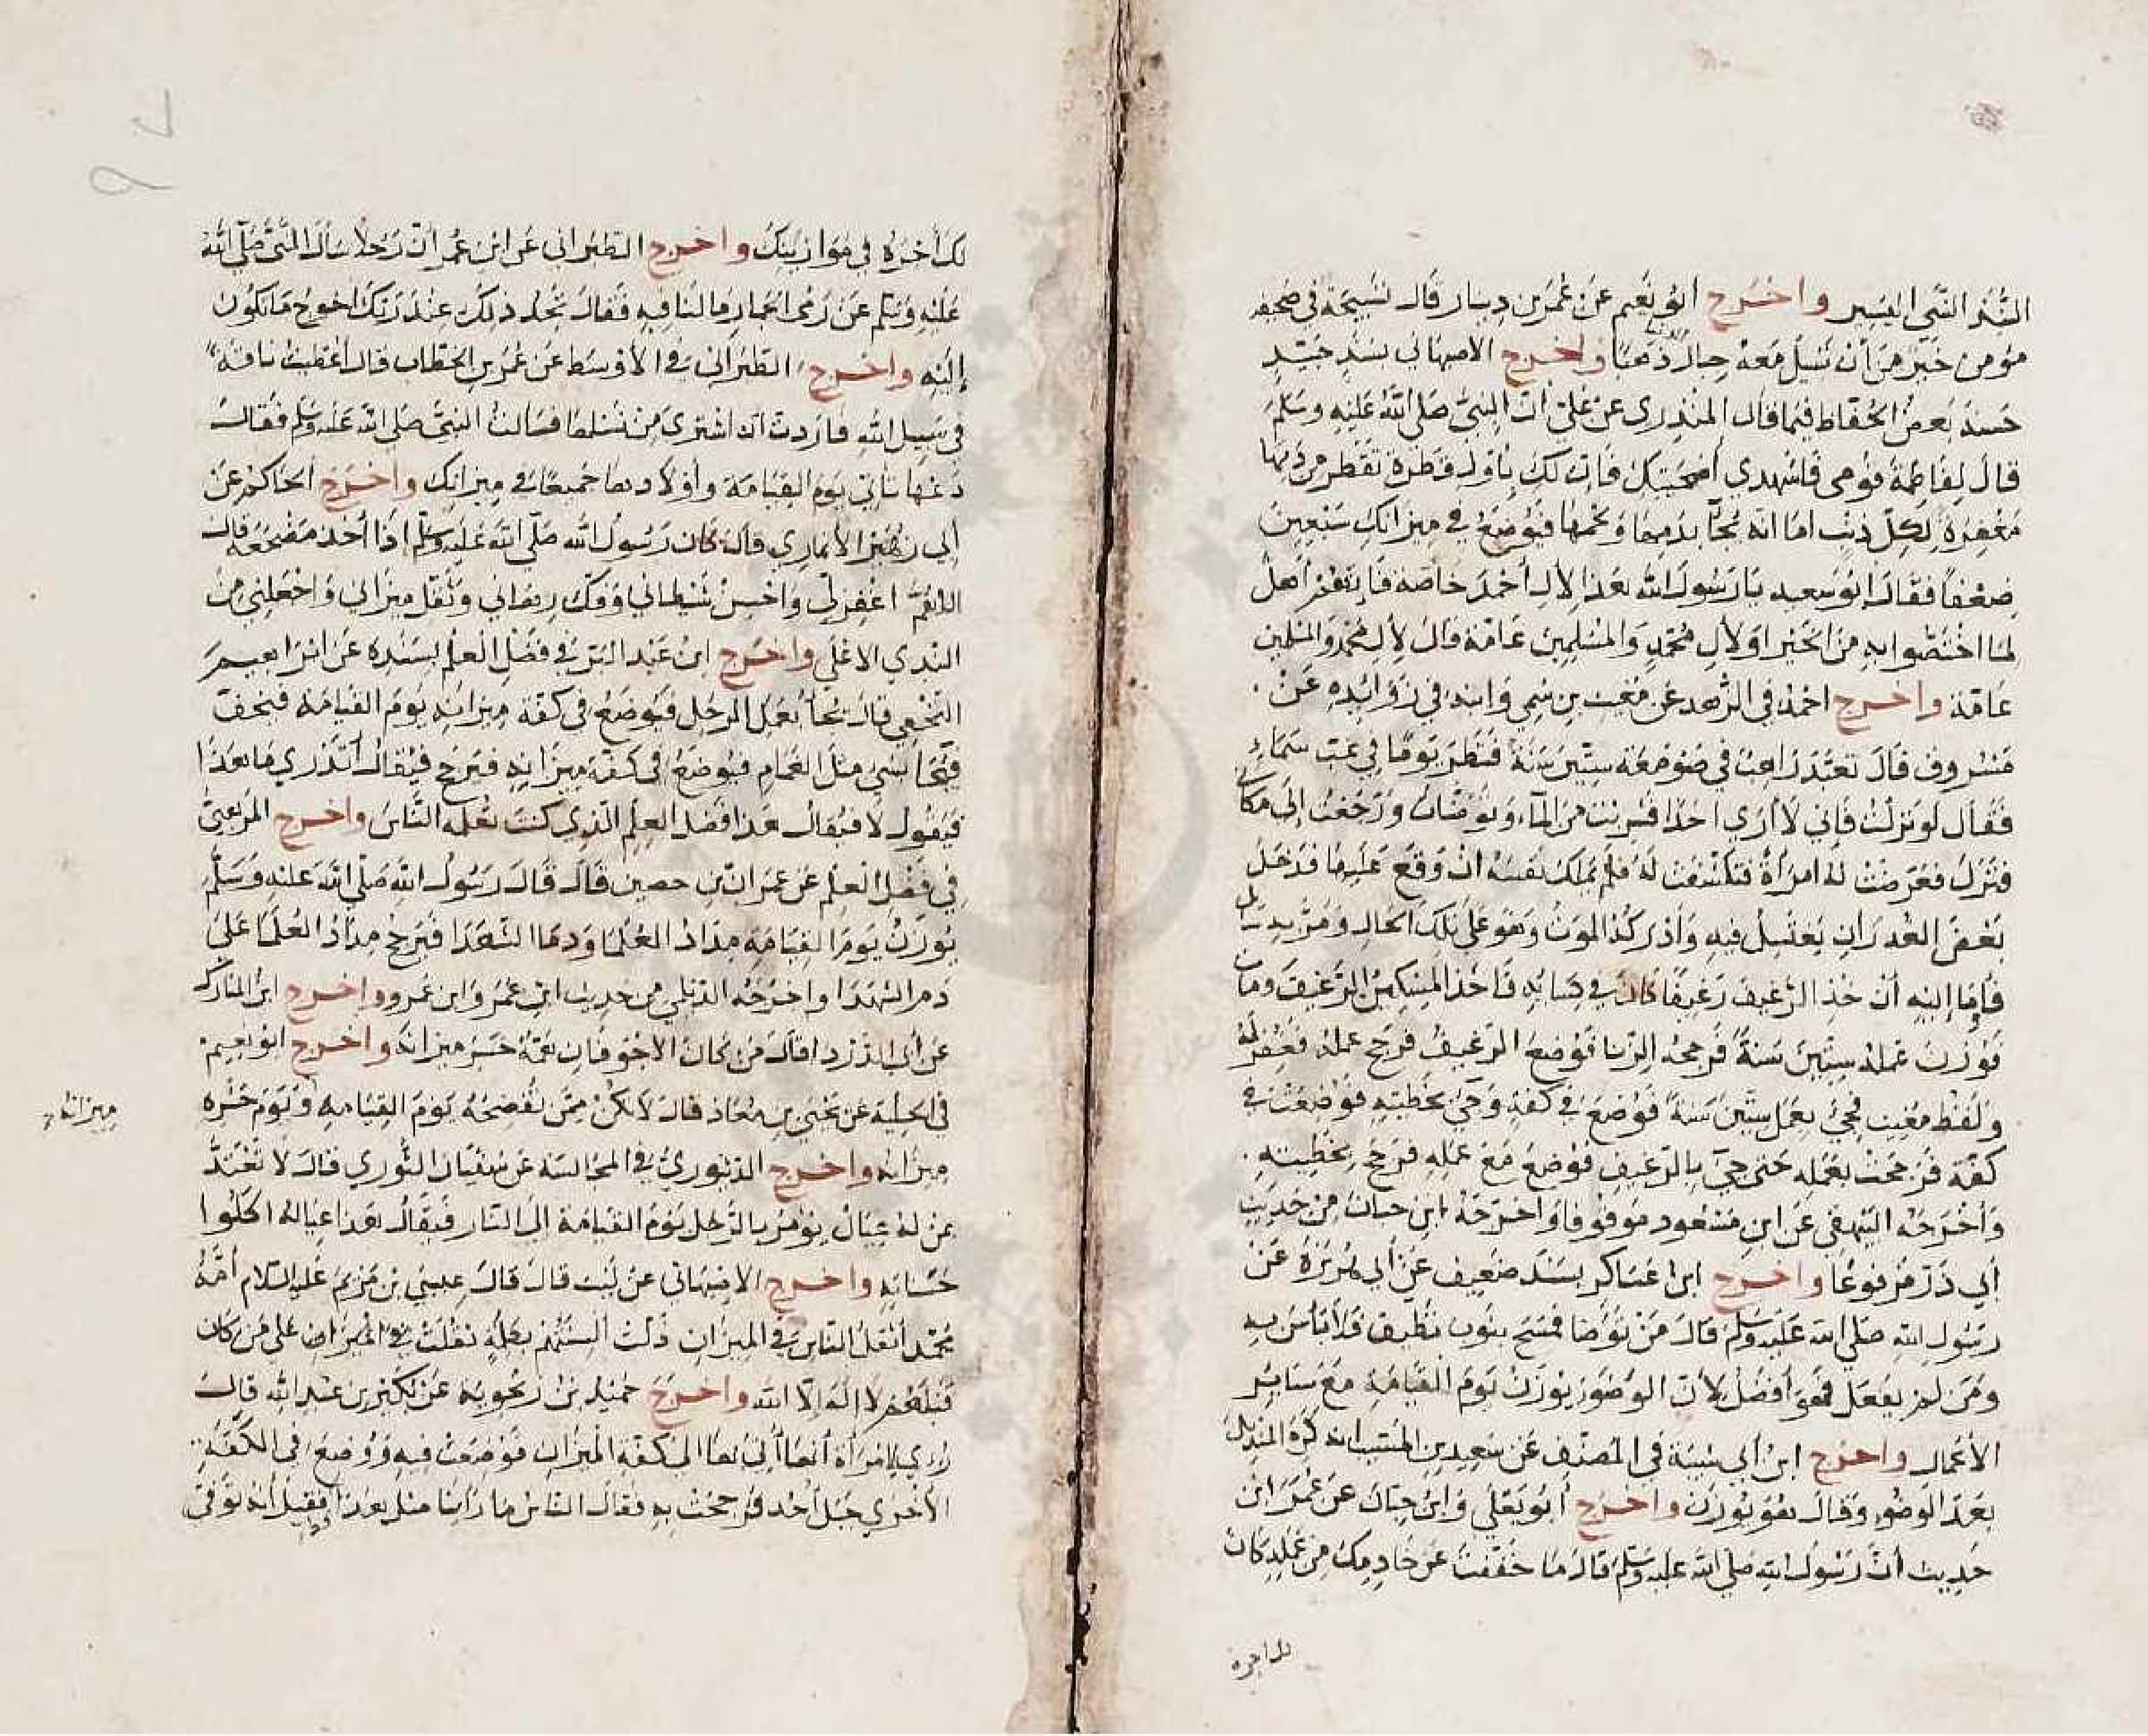 النذر الشي اليسير واخرج ابو نعيم عن عمر بن دينار قال تسبيحة في صحيفة
مؤمن خير من أن تسيل معه جبال الدنيا ذهبا واخرج الاصبهاني بسند جيد
حسنه بعض الحفاظ فيما قال المنذري عن علي أن النبي صلى الله عليه وسلم
قال لفاطمة قومي فاشهدي أضحيتك فان لك باول قطرة تقطر من دمها
مغفرة لكل ذنب اما انه يجآ بدمها ولحمها فيوضع في ميزانك سبعين
ضعفا فقال ابو سعيد يا رسول الله هذا لال احمد خاصة فانهم أهل
لما اختصوا به من الخير او لال محمد والمسلمين عامة قال لال محمد والمسلمين
عامة واخرج احمد في الزهد عن مغيث بن سمي وابنه في زوائده عن
مسروف قال تعبد راهب في صومعة ستين سنة فنظر يوما في غب سماء
فقال لو نزلت فاني لا أري احدا فشربت من الماء وتوضأت ورجعت إلى مكاني
فنزل فعرضت له امرأة فتكشفت له فلم يملك نفسه ان وقع عليها فدخل
بعض الغدران يغتسل فيه وأدركه الموت وهو على تلك الحال ومر به سايل
فأوما إليه أن خذ الرغيف رغيفا كان في كسائه فاخذ المسكين الرغيف ومات
فوزن عمله ستين سنة فرجحه الزنا فوضع الرغيف فرجح عمله فغفر له
ولفظ مغيث فجئ بعمل ستين سنة فوضع في كفة وجئ بخطيته فوضعت في
كفة فرجحت بعمله حتى جيء بالرغيف فوضع مع عمله فرجح بخطيته
وأخرجه البيهقي عن ابن مسعود موقوفا واخرجه ابن حبان من حديث
أبي ذر مرفوعا واخرج ابن عساكر بسند ضعيف عن أبي هريرة عن
رسول الله صلى الله عليه وسلم قال من توضا فمسح بثوب نظيف فلا بأس به
ومن لم يفعل فهو أفضل لأن الوضوء يوزن يوم القيامة مع سائر
الأعمال واخرج ابن أبي شيبة في المصنف عن سعيد بن المسيب انه كره المنديل
بعد الوضوء وقال هو يوزن واخرج أبو يعلي وابن حبان عن عمرو ابن
حديث أن رسول الله صلى الله عليه وسلم قال ما خففت عن خادمك من عمله كان
لك اجره
لك أجره في موازينك واخرج الطبراني عن ابن عمر أن رجلا سأل النبي صلى الله
عليه وسلم عن رمي الجمار ما لنا فيه فقال تجد ذلك عند ربك احوج ما تكون
إليه واخرج الطبراني في الأوسط عن عمر بن الخطاب قال اعطيت ناقة
في سبيل الله فاردت ان اشتري من نسلها فسالت النبي صلى الله عليه وسلم فقال
دعها تأتي يوم القيامة وأولادها جميعا في ميزانك واخرج الحاكم عن
أبي زهير الأنماري قال كان رسول الله صلى الله عليه وسلم إذا أخذ مضجعه قال
اللهم اغفر لي واخس شيطاني وفك رهاني وثقل ميزاني واجعلني من
الندي الاعلى واخرج ابن عبد البر في فضل العلم بسنده عن ابراهيم
النخعي قال يجآ بعمل الرجل فيوضع في كفة ميزانه يوم القيامة فيخف
فيجآ بشي مثل الغمام فيوضع في كفة ميزانه فيرجح فيقال أتدري ما هذا
فيقول لا فيقال هذا فضل العلم الذي كنت تعلمه الناس واخرج المرهبي
في فضل العلم عن عمران بن حصين قال قال رسول الله صلى الله عليه وسلم
يوزن يوم القيامة مداد العلما ودما الشهدا فيرجح مداد العلما على
دم الشهدا واخرجه الديلمي من حديث ابن عمر وابن عمرو واخرج ابن المبارك
عن أبي الدرداء قال من كان الاجوفان همه خسر ميزانه واخرج ابو نعيم
في الحلية عن يحيى بن معاذ قال لا تكن ممن تفضحه يوم القيامة وتوم حشره
ميزانه
ميزانه واخرج الدينوري في المجالسة عن سفيان الثوري قال لا تعتد
بمن له عيال يؤمر بالرجل يوم القيامة إلى النار فيقال هذا عياله اكلوا
حسناته واخرج الاصبهاني عن ليث قال قال عيسي بن مريم عليه السلام أمة
محمد أثقل الناس في الميزان ذلت ألسنتهم بكلمة ثقلت في الميزان على من كان
قبلهم لا إله إلا الله واخرج حميد بن زنجويه عن بكير بن عبد الله قال
فوضعت فيه ووضع في الكفة
الأخري جبل أحد فرجحت به فقال الناس ما رأينا مثل هذا فقيل